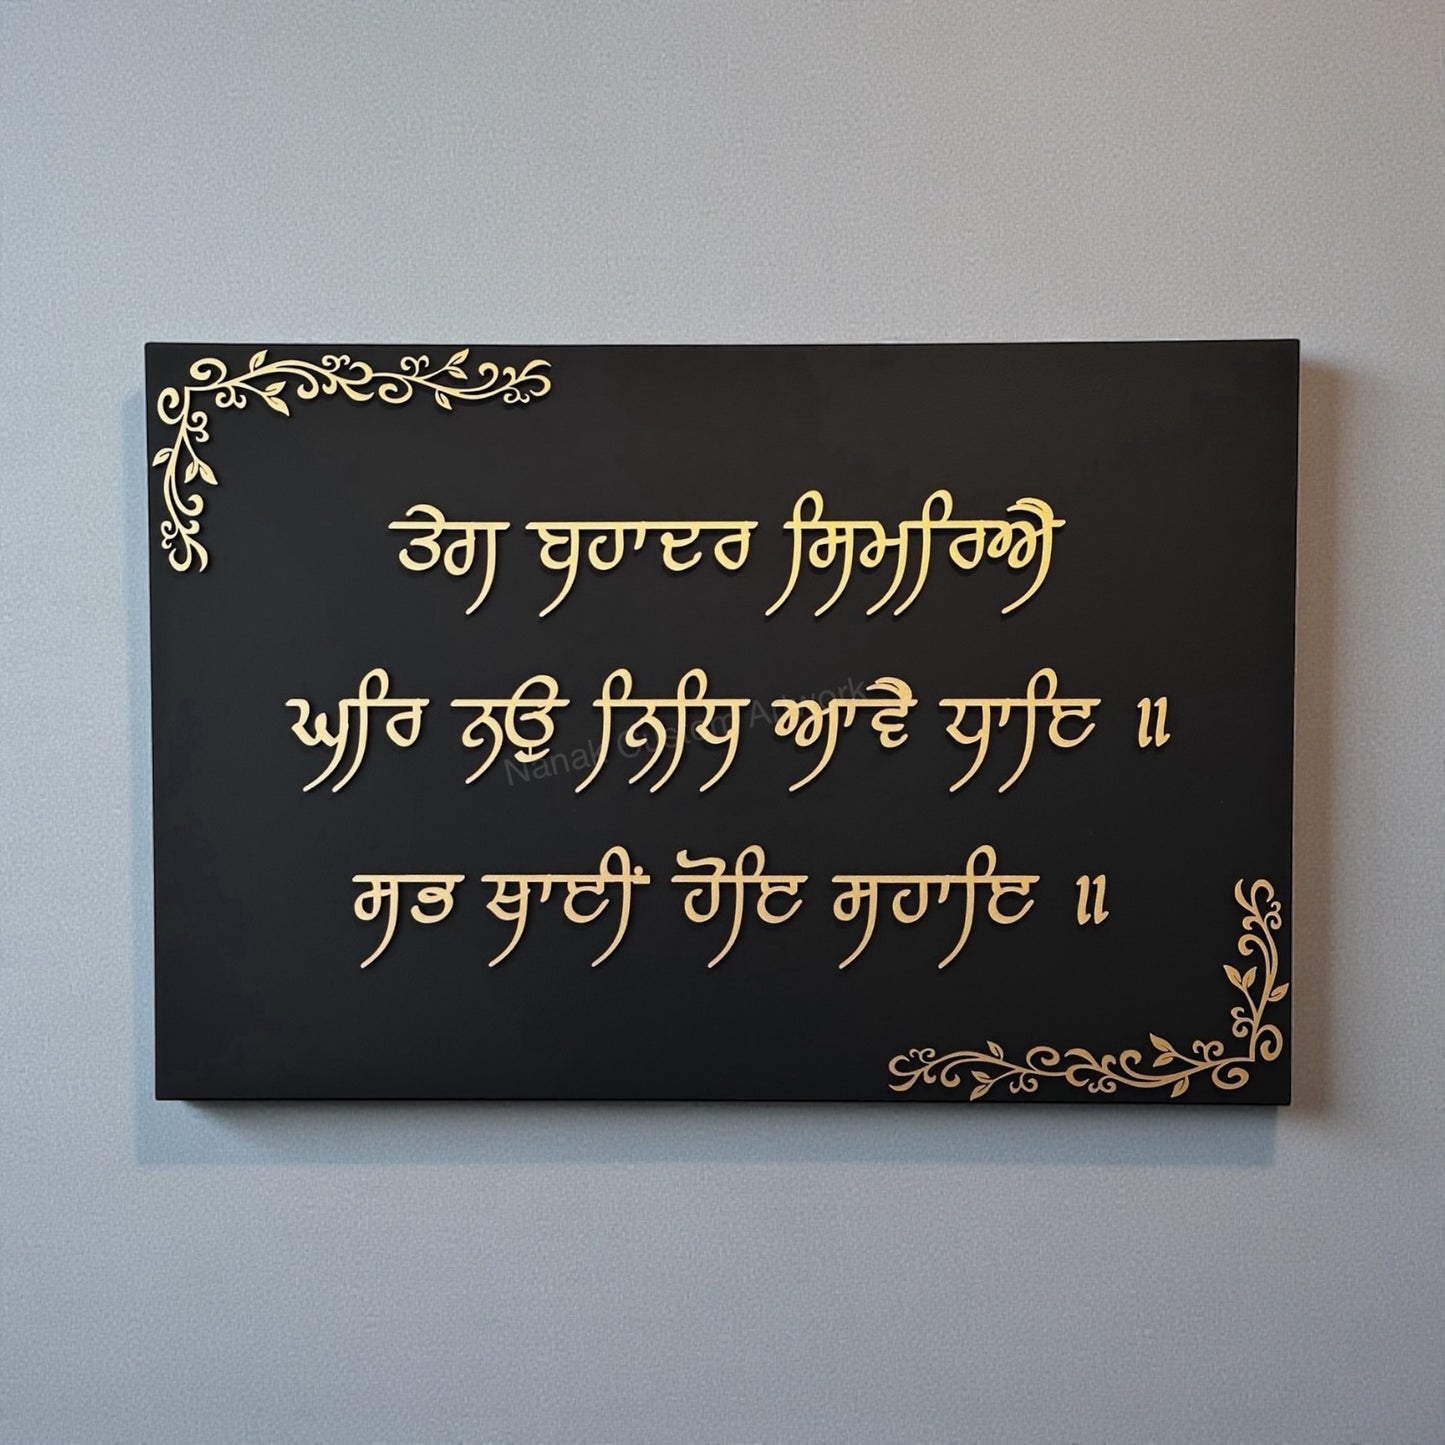 ਤੇਗ ਬਹਾਦਰ ਸਿਮਰਿਐ
ਘਰਿ ਨਉ ਨਿਧਿ ਆਵੈ ਧਾਇ ॥
Nanak Custom Artwork
ਸਭ ਥਾਈਂ ਹੋਇ ਸਹਾਇ ॥